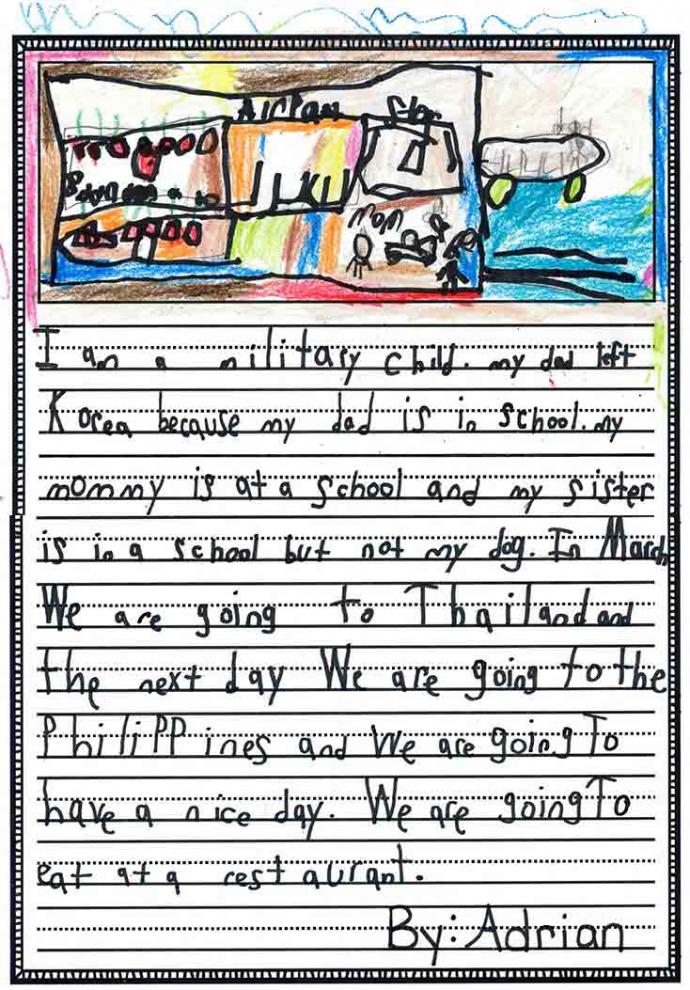 AirPlan
Stor
mom
I am a military child. my dad left
Korea because my dad is in school. my
mommy is at a school and my sister
is in a school but not my dog. In March
We are going to Thailand and
the next day We are going to the
PhiliPPines and We are going To
have a nice day. We are going To
eat at a restaurant.
By: Adrian